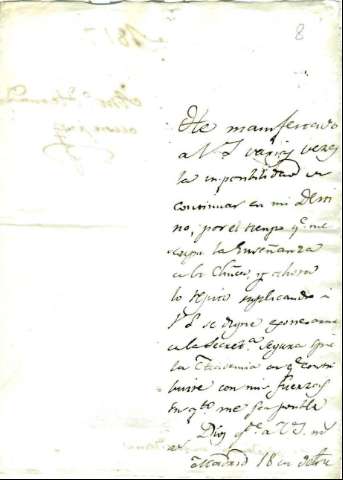 8
He manifestado
a V S varias vezes
la imposibilidad de
continuar en mi Desti
no, por el tiempo q.e me
ocupa la Enseñanza
de los Chicos, y ahora
lo repito suplicando a
V S se digne exonerarme
de la Secret.a segura que
la Academia en q.e contri
buire con mis fuerzas
en q.to me sea posible
Dios g.e a V S. m.s
a.s Madrid 18 de octre